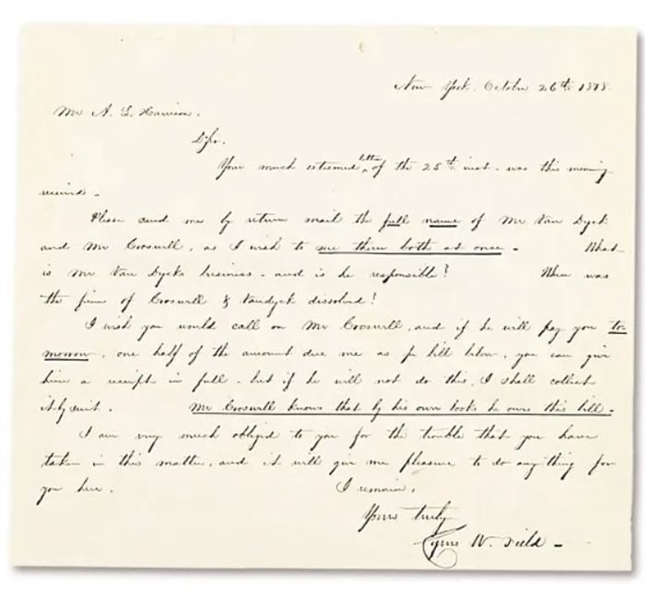 New York. October 26th 1848.
Mr A. L. Harrison.
Dr Sir.
Your much esteemed letter of the 25th inst. was this morning
received.
Please send me by return mail the full name of Mr Van Dyck
and Mr Croswell, as I wish to sue them both at once. What
is Mr Van Dycks business. and is he responsible? When was
the firm of Croswell & Vandyck dissolved?
I wish you would call on Mr Croswell, and if he will pay you to-
morrow, one half of the amount due me as pr bill below, you can give
him a receipt in full. but if he will not do this, I shall collect
it by suit. Mr Croswell knows that by his own books he owes this bill.
I am very much obliged to you for the trouble that you have
taken in this matter, and it will give me pleasure to do any thing for
you here. I remain,
Yours truly
Cyrus W. Field